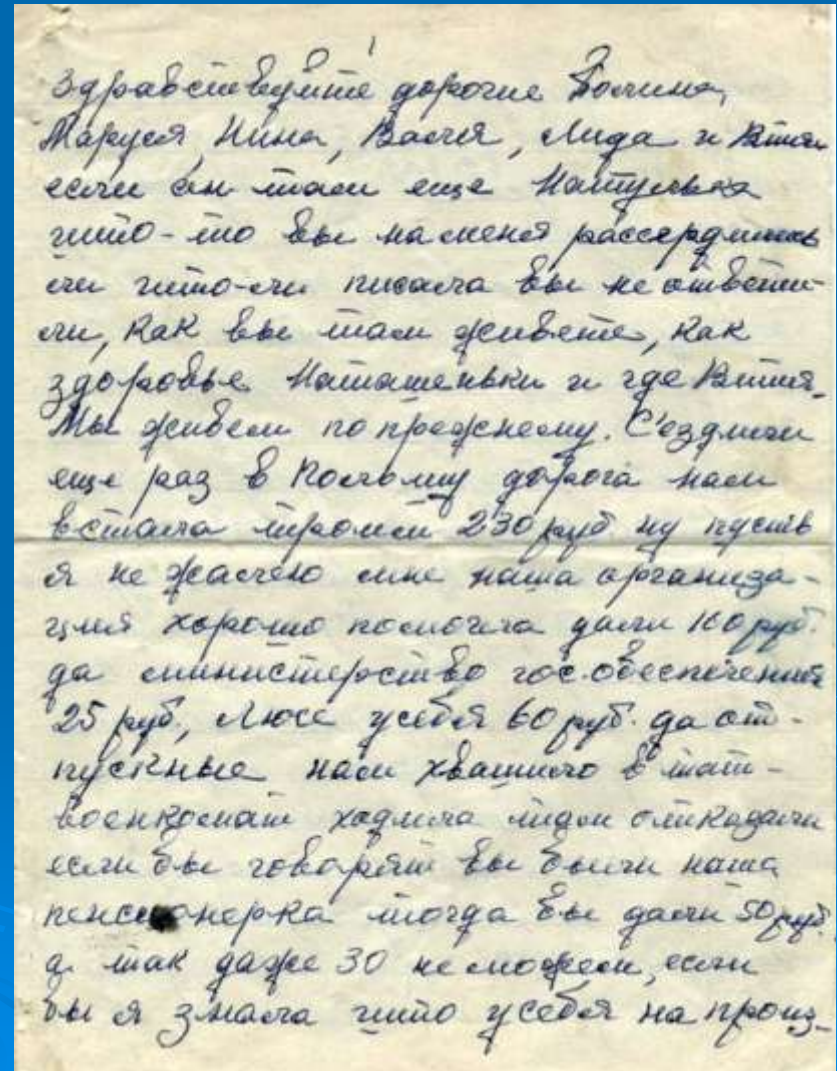 1
Здравствуйте дорогие Полина,
Маруся, Нина, Валя, Лида и Витя
если он там еще Натулька
што-то вы на меня рассердились
ли што-ли писала вы не ответи-
ли, как вы там живете, как
здоровье Наташеньки и где Витя.
Мы живем по прежнему. С'ездили
еще раз в Польшу дорога нам
встала туда 230 руб ну пусть
я не жалею мне наша организа-
ция хорошо помогла дали 100 руб.
да министерство гос.обеспечения
25 руб., Люсе у себя 60 руб. да от-
пускные нам хватило в
военкомат ходила там отказали
если бы говорят вы были наша
пенсионерка тогда бы дали 50 руб.
а так даже 30 не можем, если
бы я знала што у себя на произ-